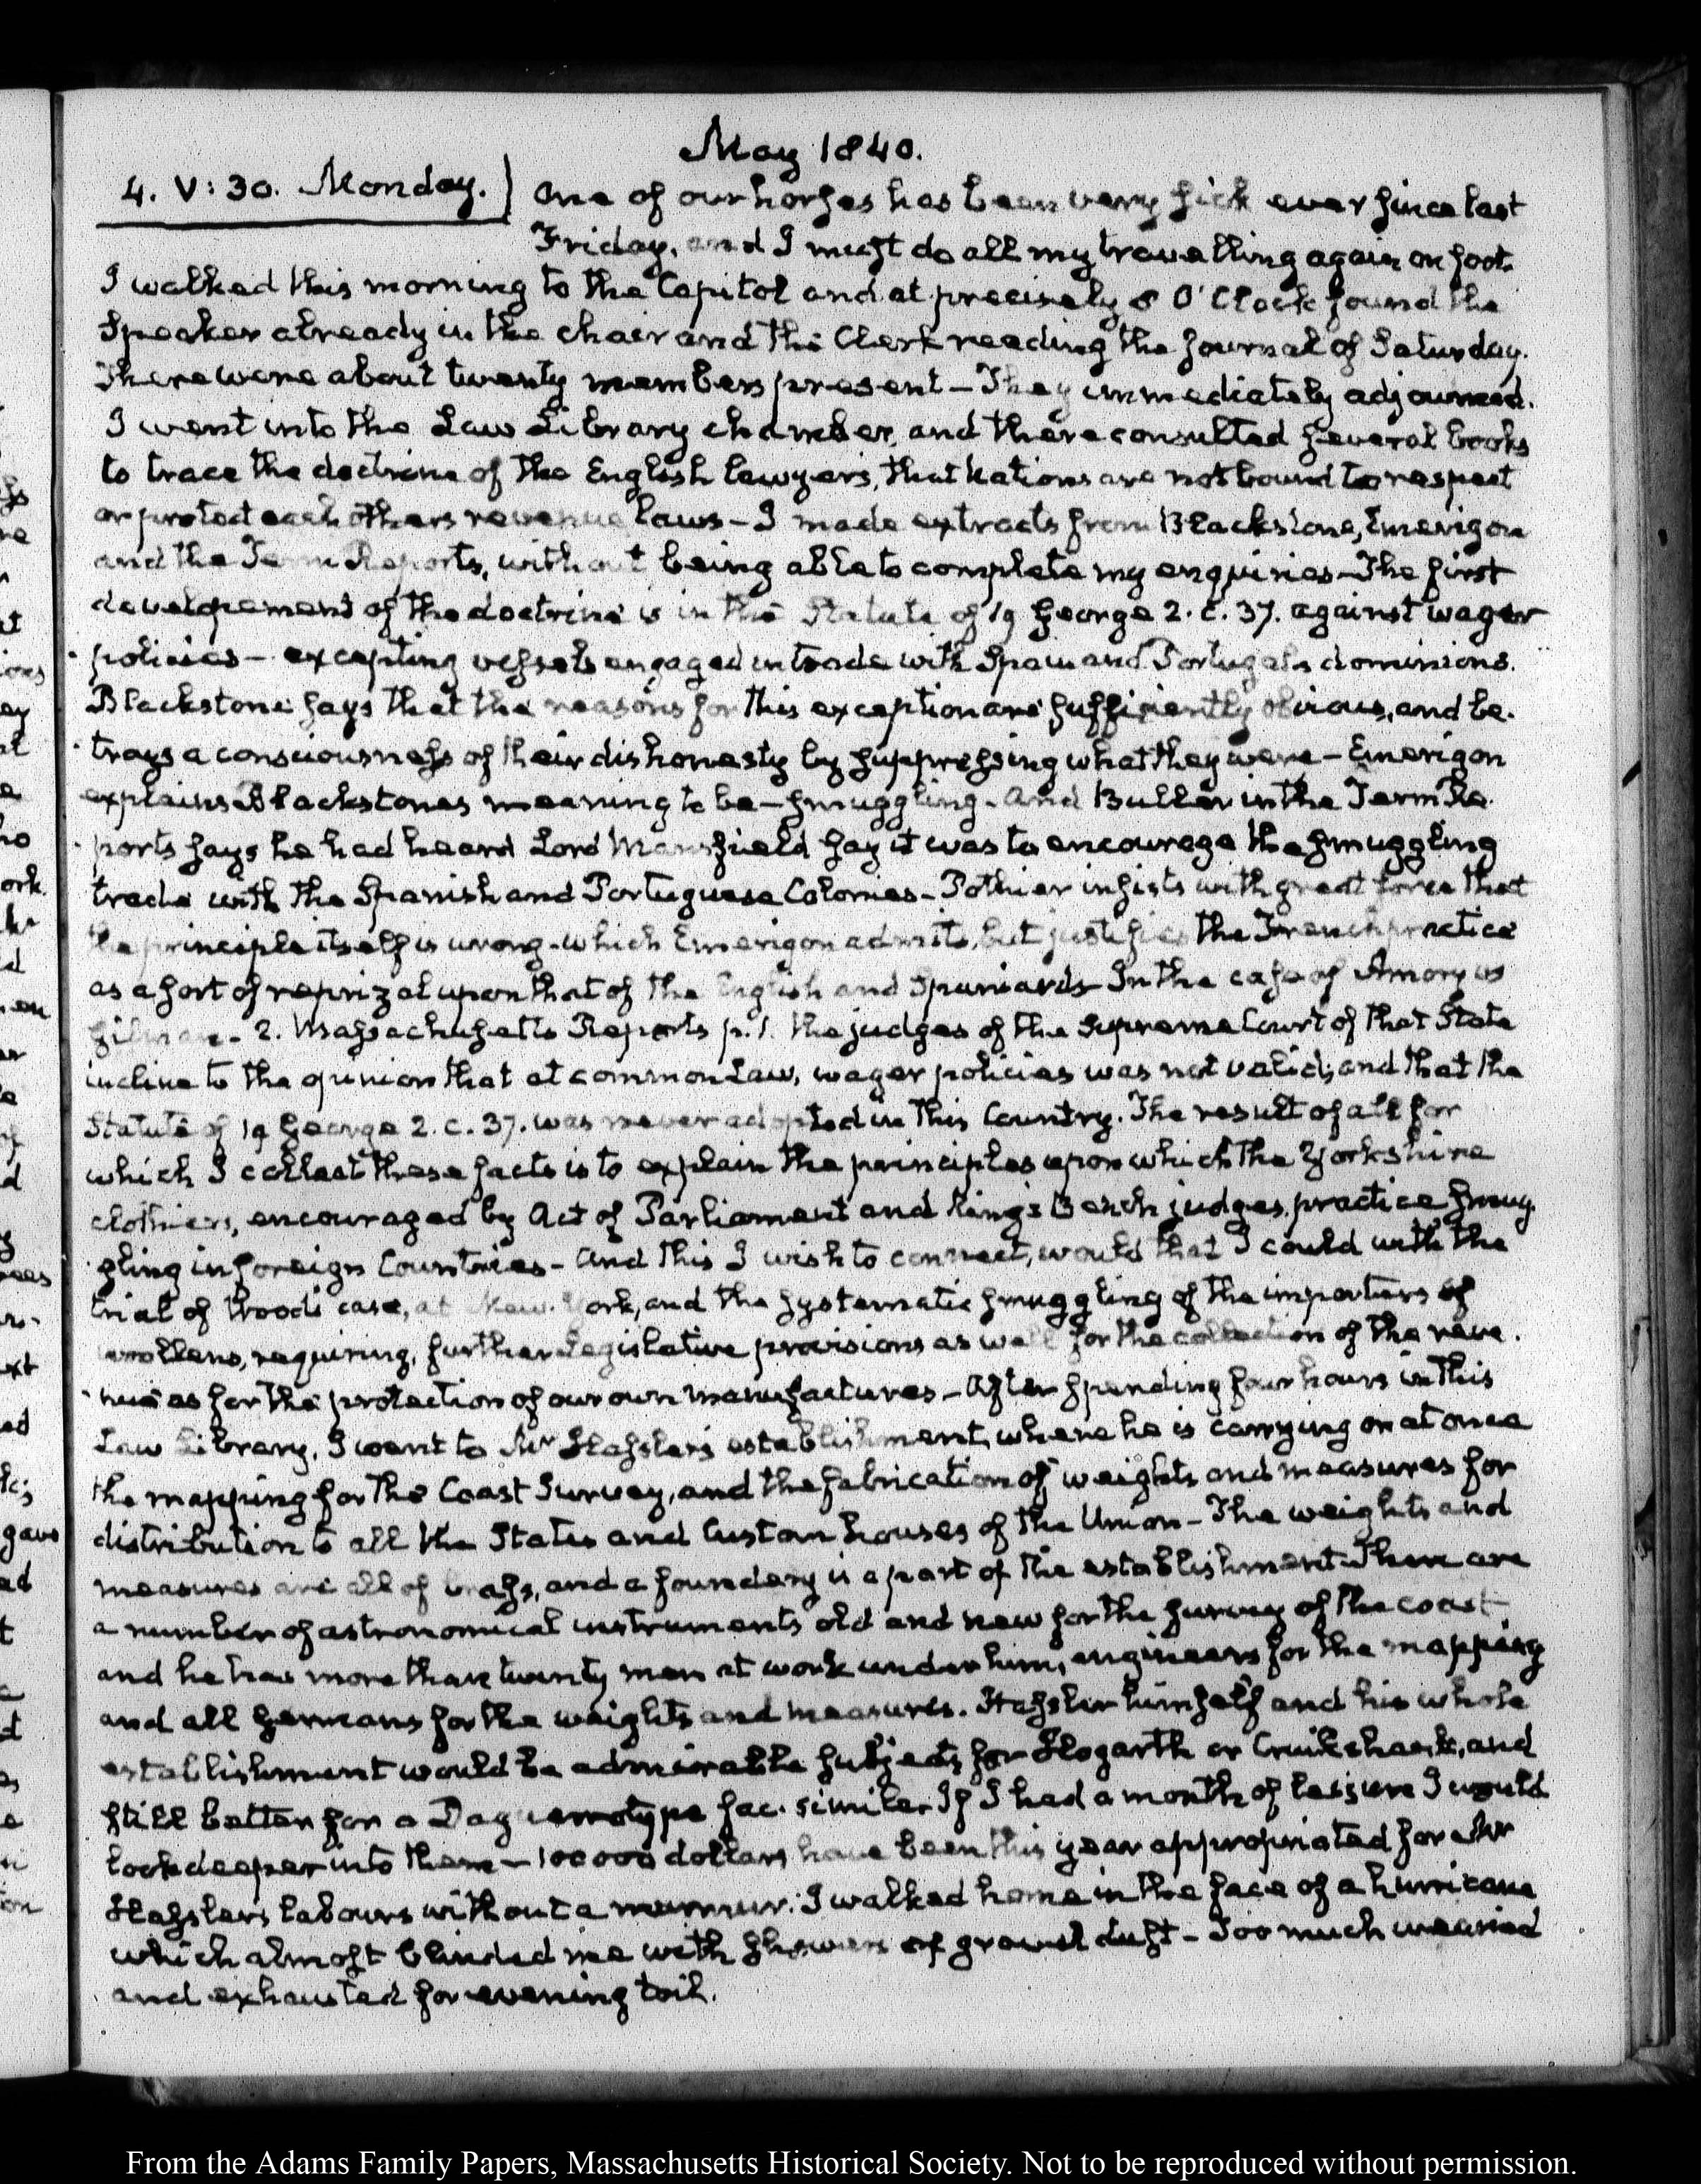 May 1840.
4. V:30. Monday. One of our horses has been very sick ever since last
Friday, and I must do all my travelling again on foot.
I walked this morning to the Capitol and at precisely 8 O'Clock found the
Speaker already in the chair and the Clerk reading the Journal of Saturday.
There were about twenty members present — They immediately adjourned.
I went into the Law Library chamber, and there consulted several books
to trace the doctrine of the English lawyers, that Nations are not bound to respect
or protect each others revenue laws — I made extracts from Blackstone, Emerigon
and the Term Reports, without being able to complete my enquiries — The first
developement of the doctrine is in the Statute of 19 George 2. c. 37. against wager
policies — excepting vessels engaged in trade with Spain and Portugal's dominions.
Blackstone says that the reasons for this exception are sufficiently obvious, and be-
trays a consciousness of their dishonesty by suppressing what they were — Emerigon
explains Blackstones meaning to be — smuggling. And Buller in the Term Re-
ports says he had heard Lord Mansfield say it was to encourage the smuggling
trade with the Spanish and Portuguese Colonies — Pothier insists with great force that
the principle itself is wrong — which Emerigon admits, but justifies the French practice
as a sort of reprizal upon that of the English and Spaniards — In the case of Amory vs
Gilman — 2. Massachusetts Reports p. 1. the judges of the Supreme Court of that State
incline to the opinion that at common Law, wager policies was not valid; and that the
Statute of 19 George 2. c. 37. was never adopted in this Country. The result of all for
which I collect these facts is to explain the principles upon which the Yorkshire
clothiers, encouraged by Act of Parliament and King's Bench judges, practice smug-
gling in foreign Countries — And this I wish to connect, would that I could with the
trial of Wood's case, at New-York, and the systematic smuggling of the importers of
woollens, requiring, further Legislative provisions as well for the collection of the reve-
nue as for the protection of our own manufactures — After spending four hours in this
Law Library, I went to Mr Hassler's establishment, where he is carrying on at once
the mapping for the Coast Survey, and the fabrication of weights and measures for
distribution to all the States and Custom houses of the Union — The weights and
measures are all of brass, and a foundery is a part of the establishment — There are
a number of astronomical instruments old and new for the survey of the coast,
and he has more than twenty men at work under him, engineers for the mapping
and all Germans for the weights and measures. Hassler himself and his whole
establishment would be admirable subjects for Hogarth or Cruikshank, and
still better for a Daguerrotype fac-simile. If I had a month of leisure I would
look deeper into them — 100000 dollars have been this year appropriated for Mr
Hassler's labours without a murmur. I walked home in the face of a hurricane
which almost blinded me with showers of gravel dust — Too much wearied
and exhausted for evening toil.
From the Adams Family Papers, Massachusetts Historical Society. Not to be reproduced without permission.